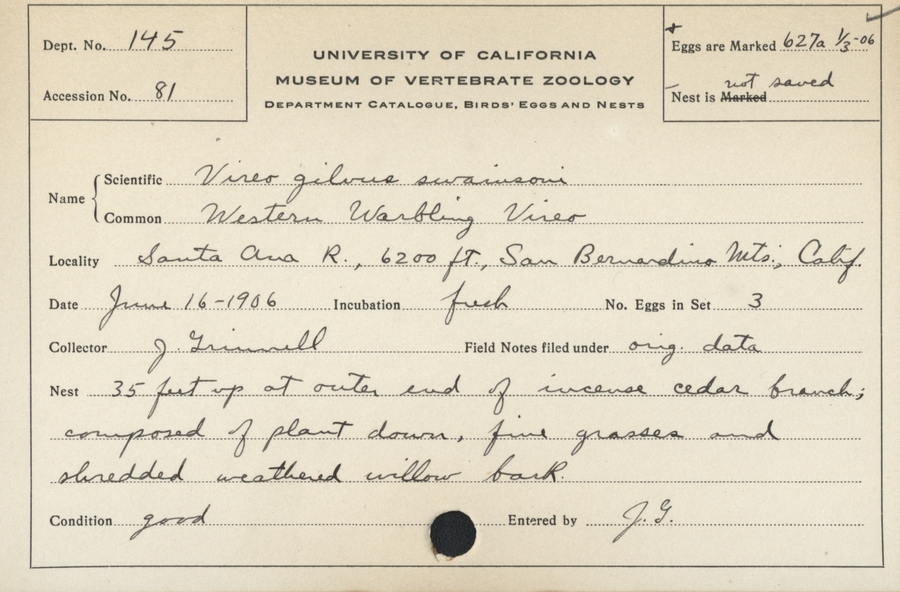 Dept. No. 145
Accession No. 81
UNIVERSITY OF CALIFORNIA
MUSEUM OF VERTEBRATE ZOOLOGY
DEPARTMENT CATALOGUE, BIRDS' EGGS AND NESTS
Eggs are Marked 627a 1/3-06
Nest is Marked not saved
Name
Scientific Vireo gilvus swainsoni
Common Western Warbling Vireo
Locality Santa Ana R., 6200 ft., San Bernardino Mts., Calif.
Date June 16-1906 Incubation fresh No. Eggs in Set 3
Collector J. Grinnell Field Notes filed under orig. data
Nest 35 feet up at outer end of incense cedar branch;
composed of plant down, fine grasses and
shredded weathered willow bark.
Condition good Entered by J. G.